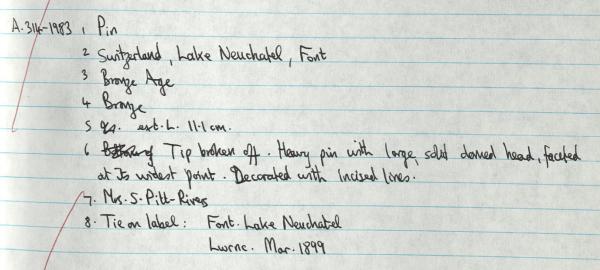 A.314-1983 1 Pin
2 Switzerland, Lake Neuchatel, Font
3 Bronze Age
4 Bronze
5 ext. L. 11.1 cm.
6 Tip broken off. Heavy pin with large, solid domed head, faceted
at its widest point. Decorated with incised lines.
7. Mrs. S. Pitt-Rivers
8. Tie on label: Font. Lake Neuchatel
Lwrnc. Mar. 1899